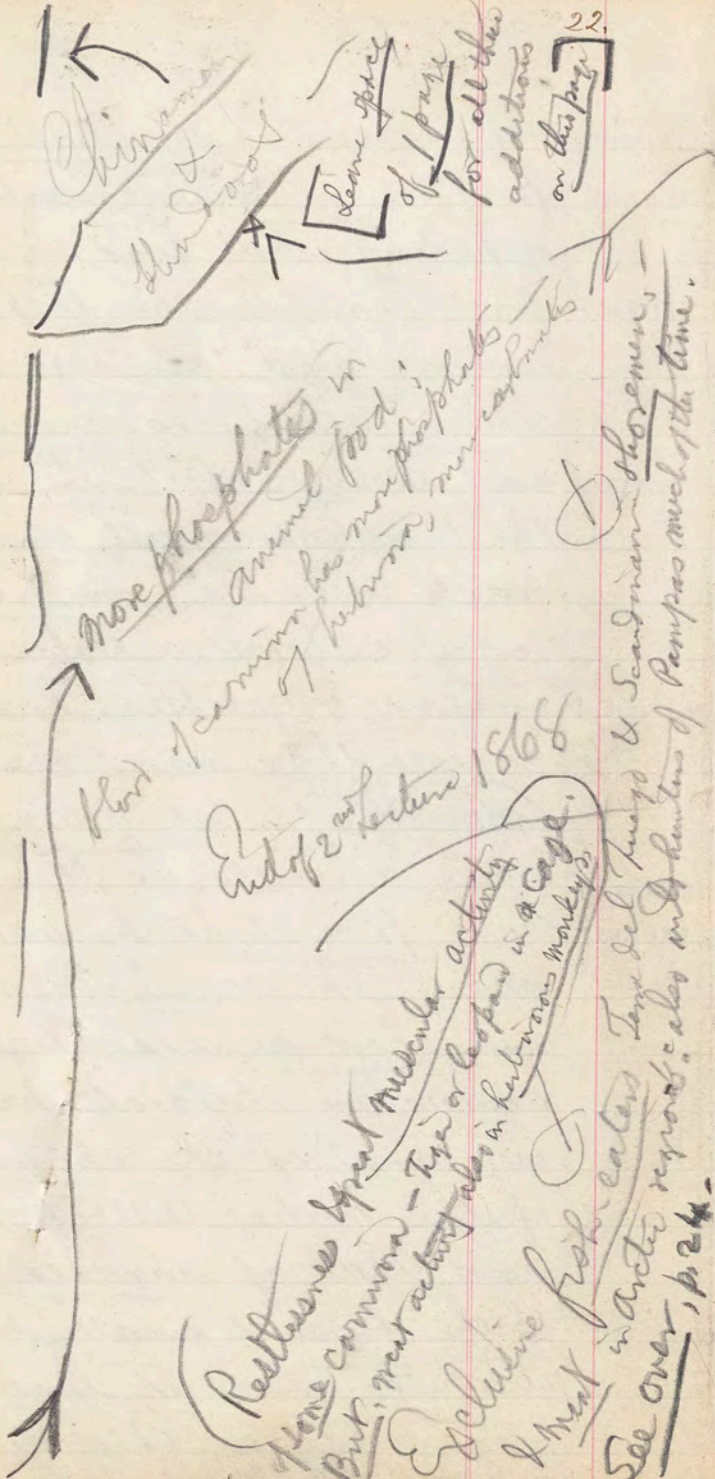 22.
[Leave space
of 1 page
for all these
additions
on this page]
Chinamen
&
Hindoos
More phosphates in
animal food:
blood of carnivora has more phosphates
of herbivora, more carbonates
End of 2nd Lecture 1868
Restlessness & great muscular activity
of some carnivora — Tiger or leopard in a cage.
But, great activity also in herbivorous monkeys.
Exclusive fish-eaters Terra del Fuego & Scandinavian shoremen, —
& meat in Arctic regions: also wild hunters of Pampas much of the time.
See over, p. 24.